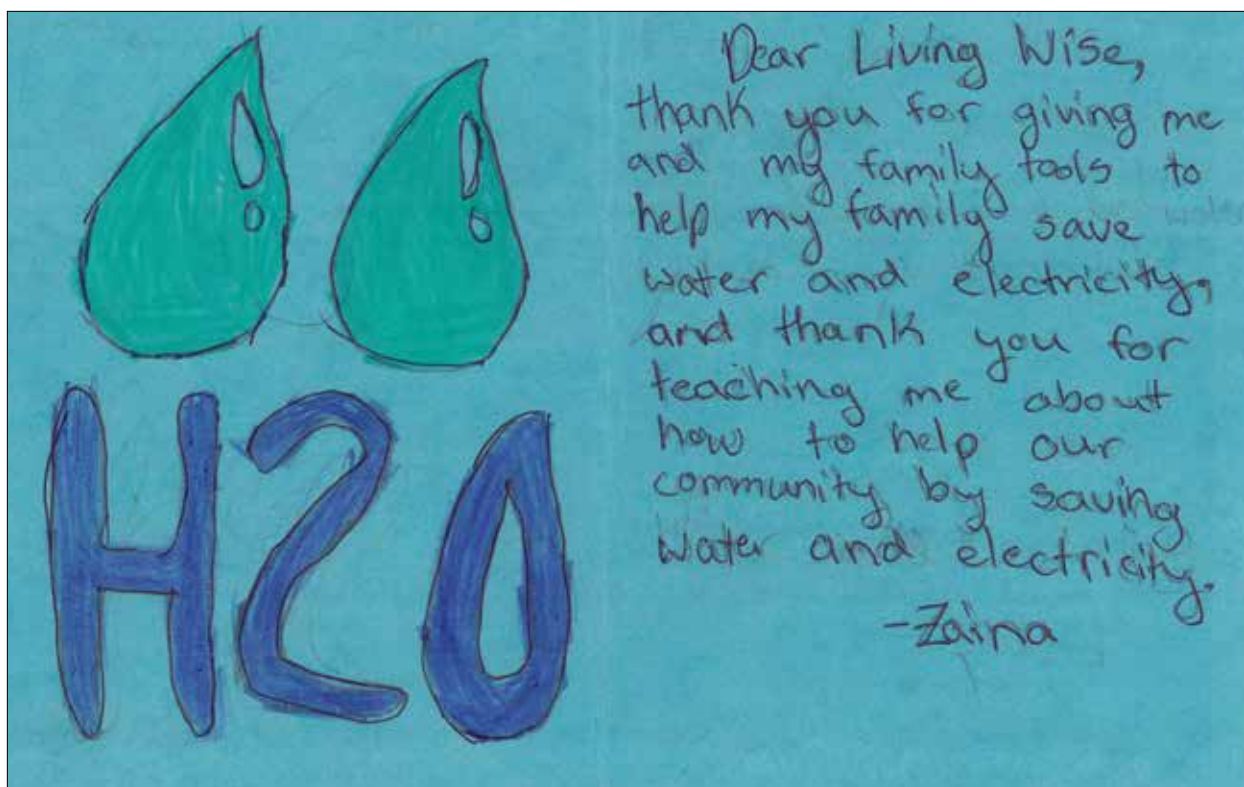 H2O
Dear Living Wise,
thank you for giving me
and my family tools to
help my family save
water and electricity,
and thank you for
teaching me about
how to help our
community by saving
water and electricity.
-Zaina